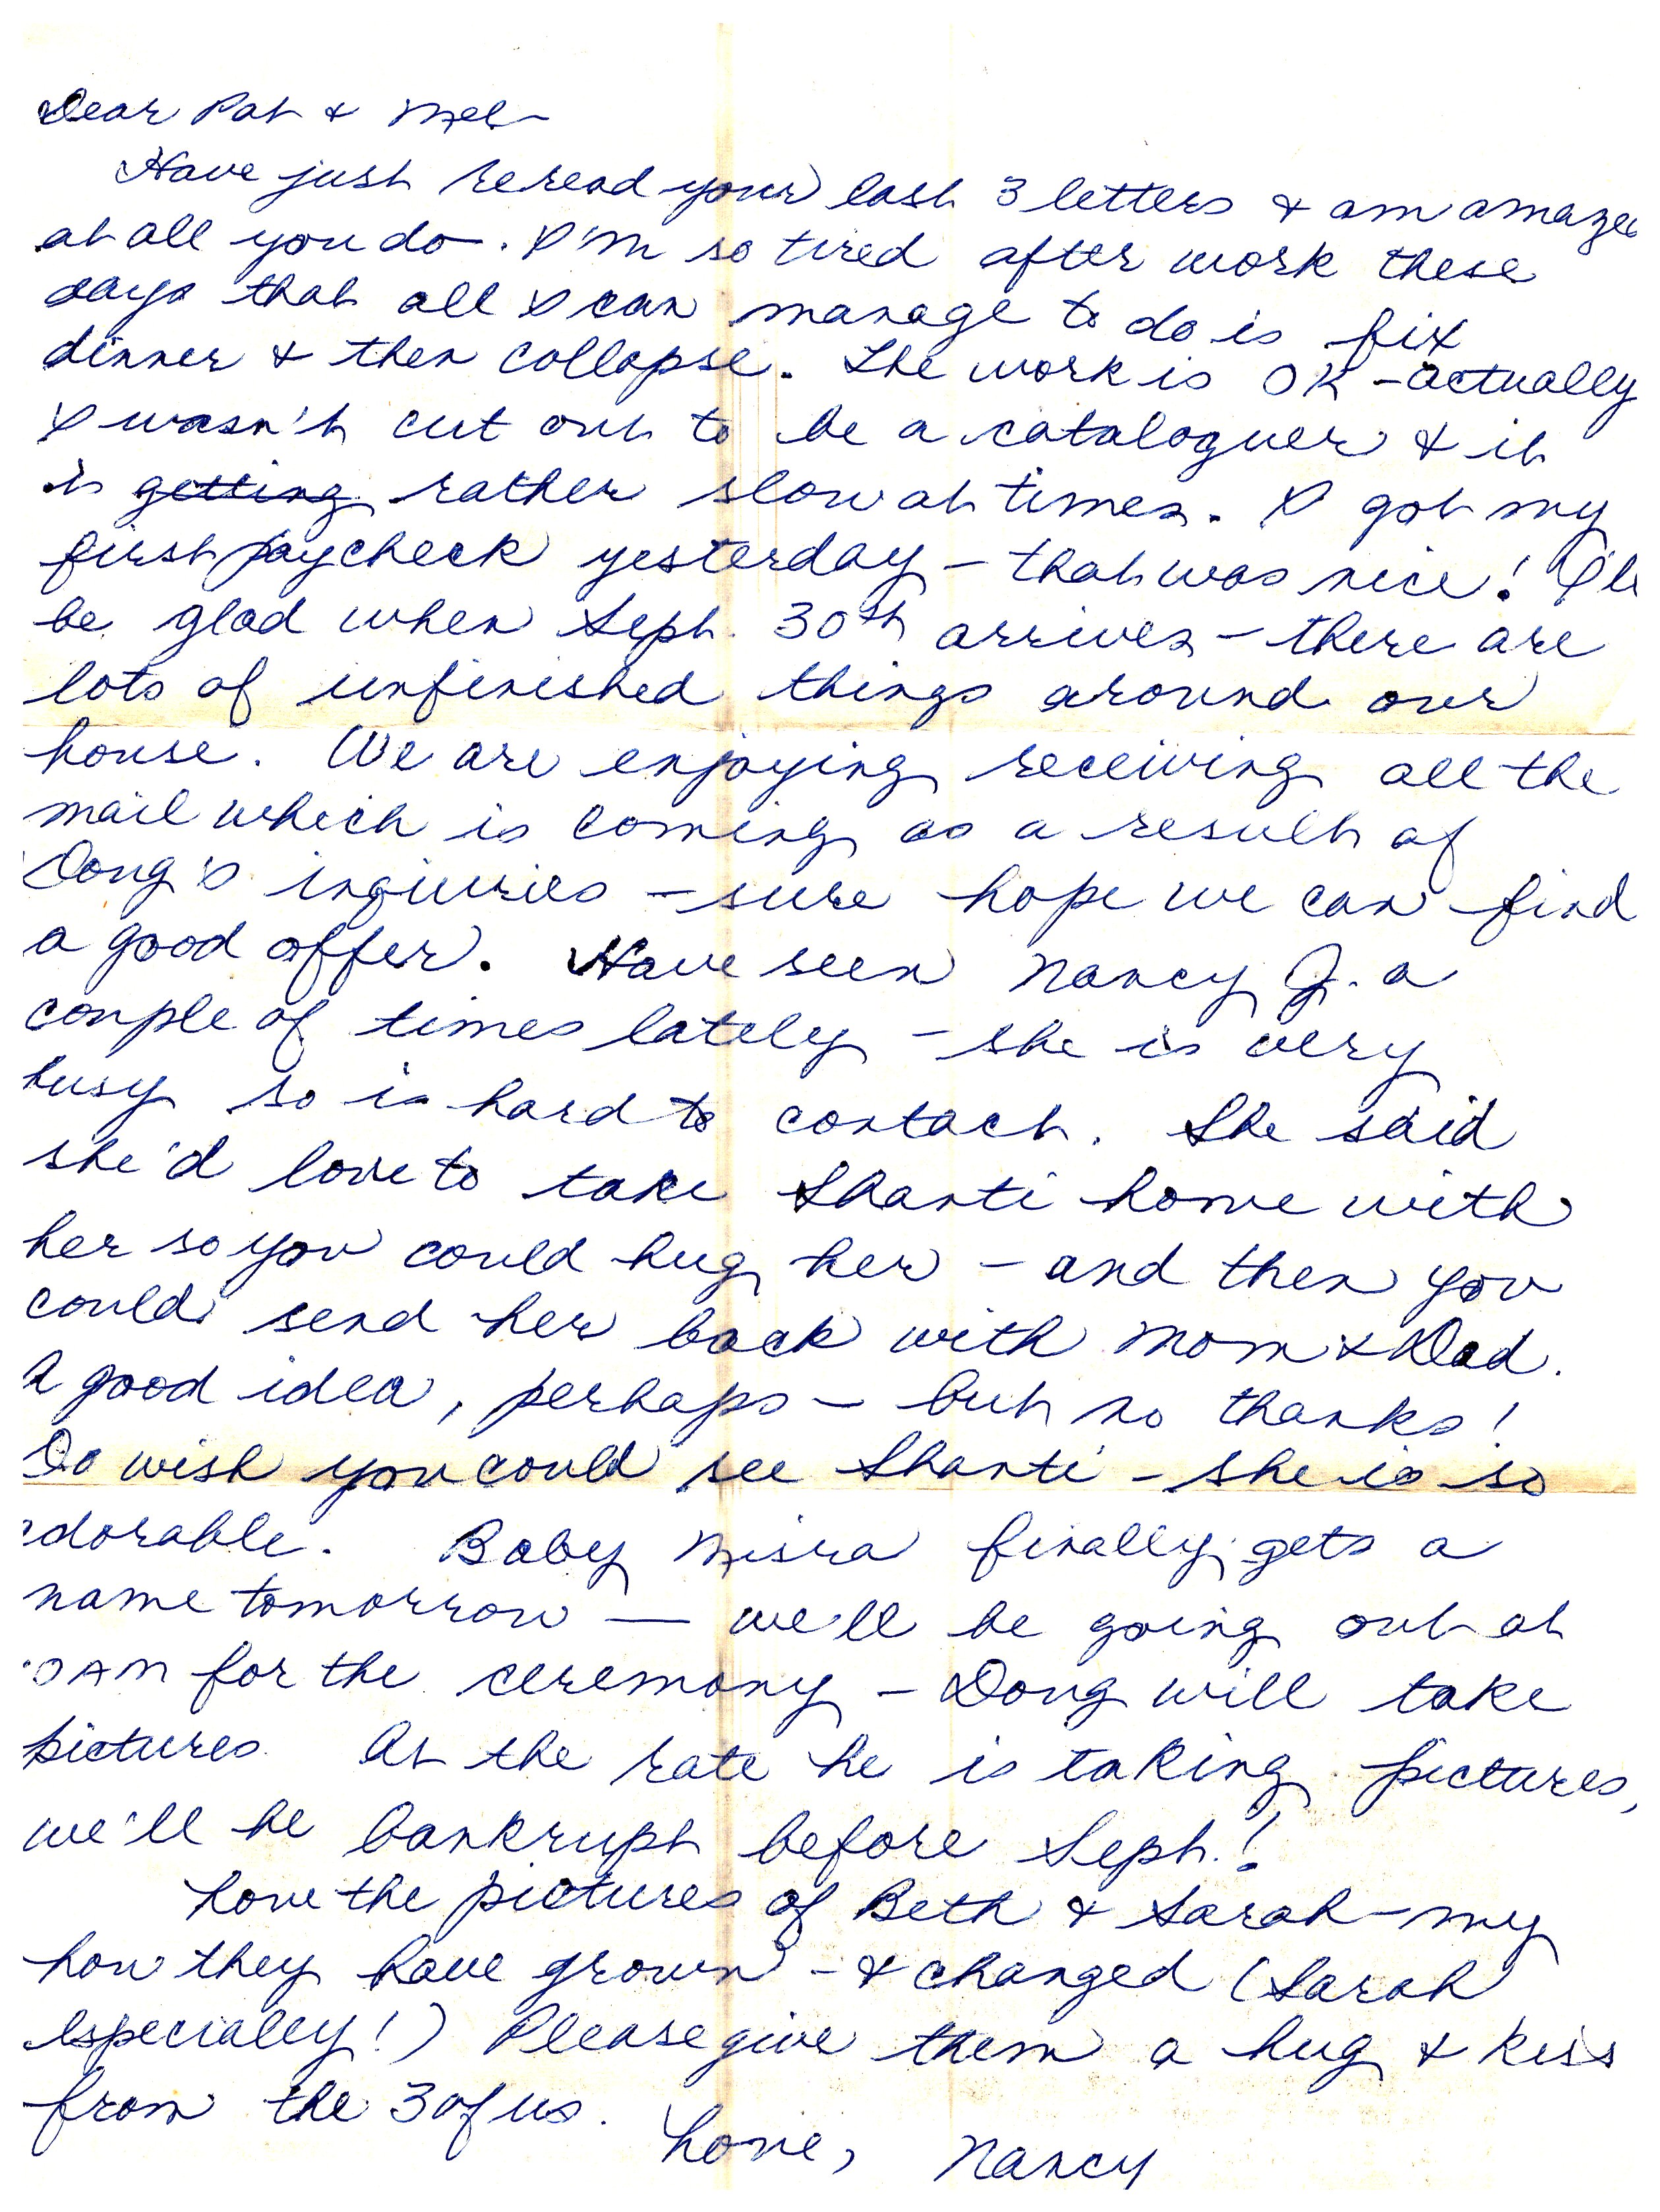 Dear Pat & Mel-
Have just reread your last 3 letters & am amazed
at all you do. I'm so tired after work these
days that all I can manage to do is fix
dinner & then collapse. The work is OK - actually
I wasn't cut out to be a cataloguer & it
is getting rather slow at times. I got my
first paycheck yesterday - that was nice! I'll
be glad when Sept. 30th arrives - there are
lots of unfinished things around our
house. We are enjoying receiving all the
mail which is coming as a result of
Doug's inquiries - sure hope we can find
a good offer. Have seen Nancy J. a
couple of times lately - she is very
busy so is hard to contact. She said
she'd love to take Shanti home with
her so you could hug her - and then you
could send her back with Mom & Dad.
A good idea, perhaps - but no thanks!
Do wish you could see Shanti - she is so
adorable. Baby Misra finally gets a
name tomorrow — we'll be going out at
AM for the ceremony - Doug will take
pictures. At the rate he is taking pictures,
we'll be bankrupt before Sept.!
Love the pictures of Beth & Sarah - my
how they have grown - & changed (Sarah
especially!) Please give them a hug & kiss
from the 3 of us.
Love, Nancy